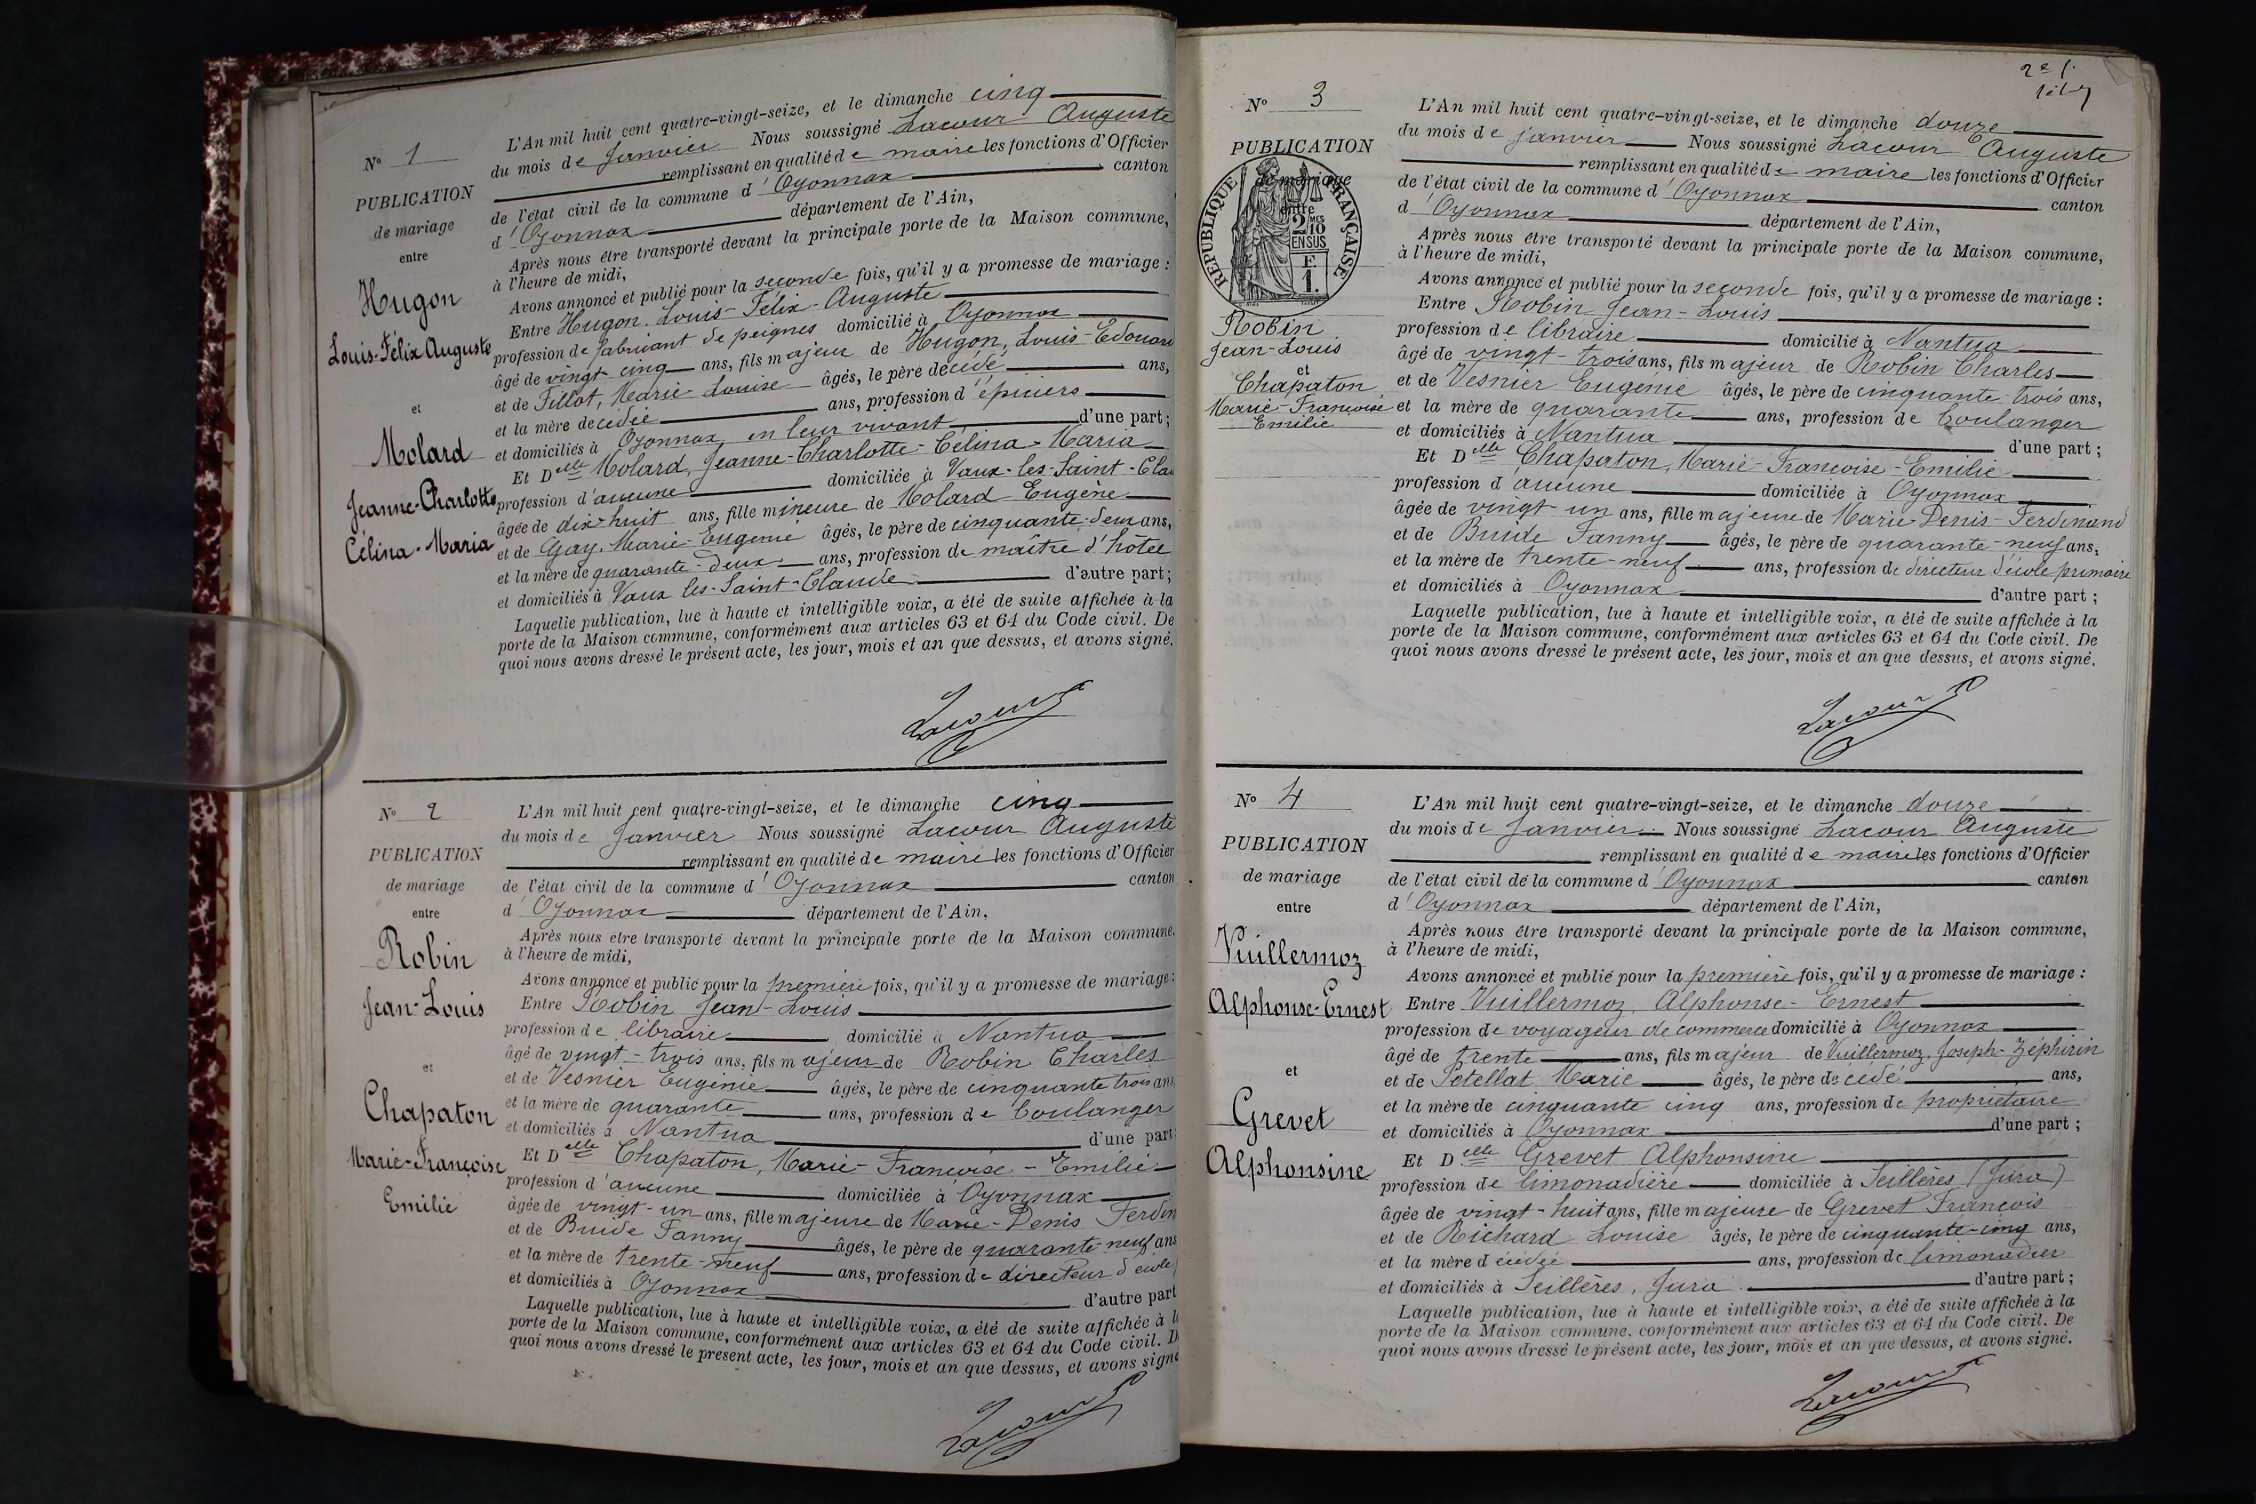 N° 1
PUBLICATION
de mariage
entre
Hugon
Louis-Félix Auguste
et
Molard
Jeanne-Charlotte
Célina-Maria
L'An mil huit cent quatre-vingt-seize, et le dimanche cinq
du mois de Janvier Nous soussigné Lacour Auguste
remplissant en qualité de maire les fonctions d'Officier
de l'état civil de la commune d'Oyonnax canton
d'Oyonnax département de l'Ain,
Après nous être transporté devant la principale porte de la Maison commune,
à l'heure de midi,
Avons annoncé et publié pour la seconde fois, qu'il y a promesse de mariage :
Entre Hugon. Louis-Félix-Auguste
profession de fabricant de peignes domicilié à Oyonnax
âgé de vingt cinq ans, fils majeur de Hugon, Louis-Edouard
et de Fillot, Marie-Louise âgés, le père décédé ans,
et la mère decédée ans, profession d'épiciers
et domiciliés à Oyonnax, en leur vivant d'une part ;
Et Delle Molard, Jeanne-Charlotte-Célina-Maria
profession d'aucune domiciliée à Vaux-les-Saint-Clau
âgée de dix-huit ans, fille mineure de Molard Eugène
et de Gay, Marie-Eugénie âgés, le père de cinquante-deux ans,
et la mère de quarante-deux ans, profession de maître d'hôtel
et domiciliés à Vaux les-Saint-Claude d'autre part ;
Laquelle publication, lue à haute et intelligible voix, a été de suite affichée à la
porte de la Maison commune, conformément aux articles 63 et 64 du Code civil. De
quoi nous avons dressé le présent acte, les jour, mois et an que dessus, et avons signé.
Lacour
N° 2
PUBLICATION
de mariage
entre
Robin
Jean-Louis
et
Chapaton
Marie-Françoise
Emilie
L'An mil huit cent quatre-vingt-seize, et le dimanche cinq
du mois de Janvier Nous soussigné Lacour Auguste
remplissant en qualité de maire les fonctions d'Officier
de l'état civil de la commune d'Oyonnax canton
d'Oyonnax département de l'Ain,
Après nous être transporté devant la principale porte de la Maison commune,
à l'heure de midi,
Avons annoncé et publié pour la première fois, qu'il y a promesse de mariage :
Entre Robin Jean-Louis
profession de libraire domicilié à Nantua
âgé de vingt-trois ans, fils majeur de Robin Charles
et de Vesnier Eugénie âgés, le père de cinquante trois ans
et la mère de quarante ans, profession de boulanger
et domiciliés à Nantua d'une part
Et Delle Chapaton, Marie-Françoise-Emilie
profession d'aucune domiciliée à Oyonnax
âgée de vingt-un ans, fille majeure de Marie-Denis Ferdin
et de Buide Fanny âgés, le père de quarante-neuf ans
et la mère de trente-neuf ans, profession de directeur d'école
et domiciliés à Oyonnax d'autre part
Laquelle publication, lue à haute et intelligible voix, a été de suite affichée à l
porte de la Maison commune, conformément aux articles 63 et 64 du Code civil. D
quoi nous avons dressé le présent acte, les jour, mois et an que dessus, et avons signé
Lacour
2e f.
N° 3
PUBLICATION
de mariage
entre
RÉPUBLIQUE FRANÇAISE
2 MES 10
EN SUS
F
1.
Robin
Jean-Louis
et
Chapaton
Marie-Françoise
Emilie
L'An mil huit cent quatre-vingt-seize, et le dimanche douze
du mois de janvier Nous soussigné Lacour Auguste
remplissant en qualité de maire les fonctions d'Officier
de l'état civil de la commune d'Oyonnax canton
d'Oyonnax département de l'Ain,
Après nous être transporté devant la principale porte de la Maison commune,
à l'heure de midi,
Avons annoncé et publié pour la seconde fois, qu'il y a promesse de mariage :
Entre Robin Jean-Louis
profession de libraire domicilié à Nantua
âgé de vingt-trois ans, fils majeur de Robin Charles
et de Vesnier Eugénie âgés, le père de cinquante-trois ans,
et la mère de quarante ans, profession de boulanger
et domiciliés à Nantua d'une part ;
Et Delle Chapaton, Marie-Françoise-Emilie
profession d'aucune domiciliée à Oyonnax
âgée de vingt-un ans, fille majeure de Marie-Denis-Ferdinand
et de Buide Fanny âgés, le père de quarante-neuf ans,
et la mère de trente-neuf ans, profession de directeur d'école primaire
et domiciliés à Oyonnax d'autre part ;
Laquelle publication, lue à haute et intelligible voix, a été de suite affichée à la
porte de la Maison commune, conformément aux articles 63 et 64 du Code civil. De
quoi nous avons dressé le présent acte, les jour, mois et an que dessus, et avons signé.
Lacour
N° 4
PUBLICATION
de mariage
entre
Vuillermoz
Alphonse-Ernest
et
Grevet
Alphonsine
L'An mil huit cent quatre-vingt-seize, et le dimanche douze
du mois de Janvier Nous soussigné Lacour Auguste
remplissant en qualité de maire les fonctions d'Officier
de l'état civil de la commune d'Oyonnax canton
d'Oyonnax département de l'Ain,
Après nous être transporté devant la principale porte de la Maison commune,
à l'heure de midi,
Avons annoncé et publié pour la première fois, qu'il y a promesse de mariage :
Entre Vuillermoz, Alphonse-Ernest
profession de voyageur de commerce domicilié à Oyonnax
âgé de trente ans, fils majeur de Vuillermoz, Joseph-Zéphirin
et de Petellat Marie âgés, le père décédé ans,
et la mère de cinquante cinq ans, profession de propriétaire
et domiciliés à Oyonnax d'une part ;
Et Delle Grevet Alphonsine
profession de limonadière domiciliée à Seillères (Jura)
âgée de vingt-huit ans, fille majeure de Grevet François
et de Richard Louise âgés, le père de cinquante-cinq ans,
et la mère décédée ans, profession de limonadier
et domiciliés à Seillères, Jura d'autre part ;
Laquelle publication, lue à haute et intelligible voix, a été de suite affichée à la
porte de la Maison commune, conformément aux articles 63 et 64 du Code civil. De
quoi nous avons dressé le présent acte, les jour, mois et an que dessus, et avons signé.
Lacour